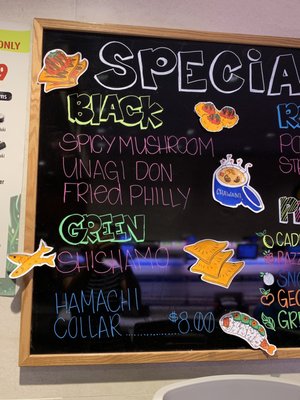 ONLY
SPECIA
BLACK
SPICY MUSHROOM
UNAGI DON
FRIED PHILLY
CHAWANI
GREEN
SHISHAMO
HAMACHI
COLLAR ........ $8.00
R
PO
P
CAD
GEO
GR